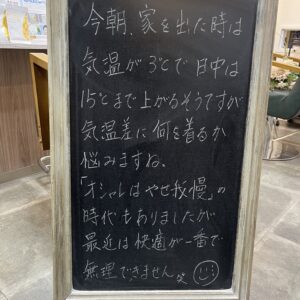 今朝、家を出た時は
気温が3℃で日中は
15℃まで上がるそうですが
気温差に何を着るか
悩みますね。
「オシャレはやせ我慢」の
時代もありましたが
最近は快適が一番で
無理できません笑